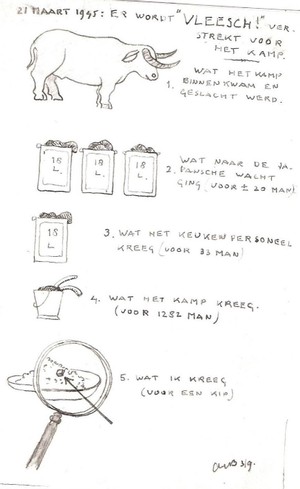 21 MAART 1945: ER WORDT "VLEESCH!" VER-
STREKT VOOR
HET KAMP.
1. WAT HET KAMP
BINNENKWAM EN
GESLACHT WERD.
18 L.
18 L.
18 L.
2. WAT NAAR DE JA-
PANSCHE WACHT
GING. VOOR ± 20 MAN!
18 L.
3. WAT HET KEUKENPERSONEEL
KREEG (VOOR 33 MAN)
4. WAT HET KAMP KREEG.
(VOOR 1282 MAN)
5. WAT IK KREEG
(VOOR EEN KIP)